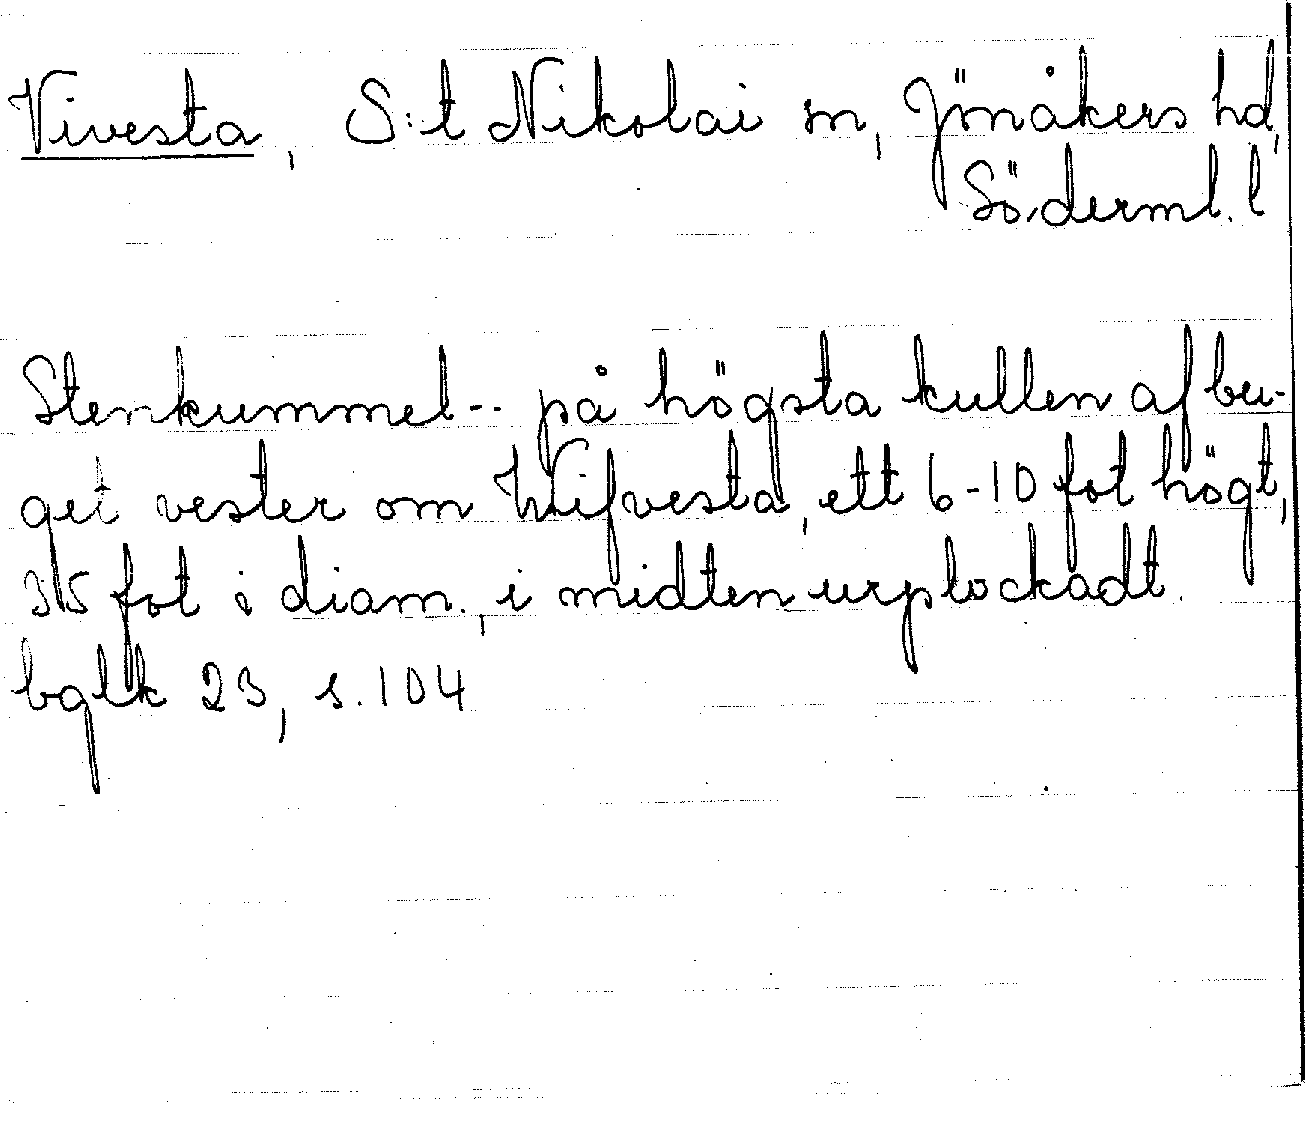 Vivesta, S:t Nikolai sn, Jönåkers hd,
Söderml. l
Stenkummel -- på högsta kullen af ber-
get vester om Wifvesta, ett 6-10 fot högt,
35 fot i diam., i midten urplockadt.
bglk 23, s. 104